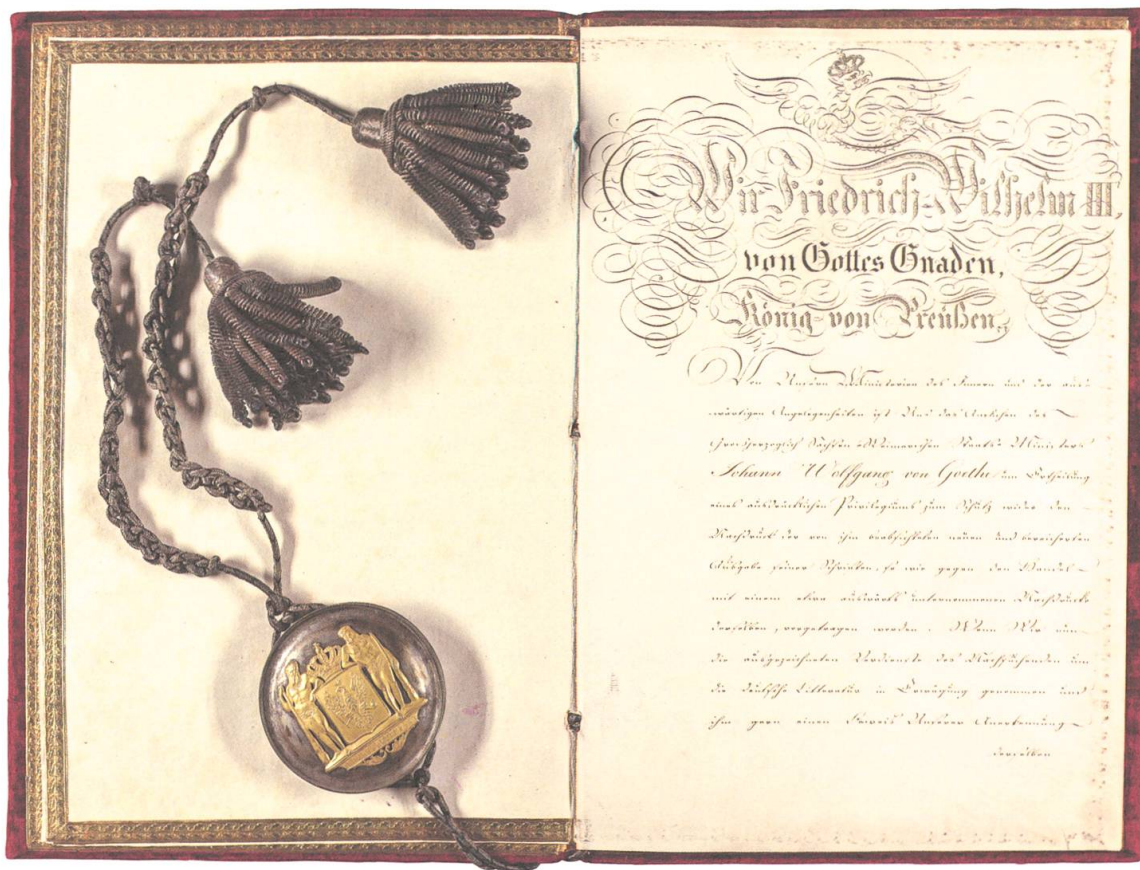 Wir Friedrich Wilhelm III,
von Gottes Gnaden,
König von Preußen,
Von Unsern Ministerien des Innern und der aus-
wärtigen Angelegenheiten ist Uns das Ansuchen des
Großherzoglich Sachsen-Weimarischen Staats-Ministers
Johann Wolfgang von Goethe um Ertheilung
eines ausdrücklichen Privilegiums zum Schutz wider den
Nachdruck der von ihm beabsichteten neuen und bereicherten
Ausgabe seiner Schriften, so wie gegen den Handel
mit einem etwa auswärts unternommenen Nachdrucke
derselben, vorgetragen worden. Wenn Wir nun
die ausgezeichneten Verdienste des Nachsuchenden um
die deutsche Litteratur in Erwägung genommen und
ihm gern einen Beweis Unserer Anerkennung
derselben